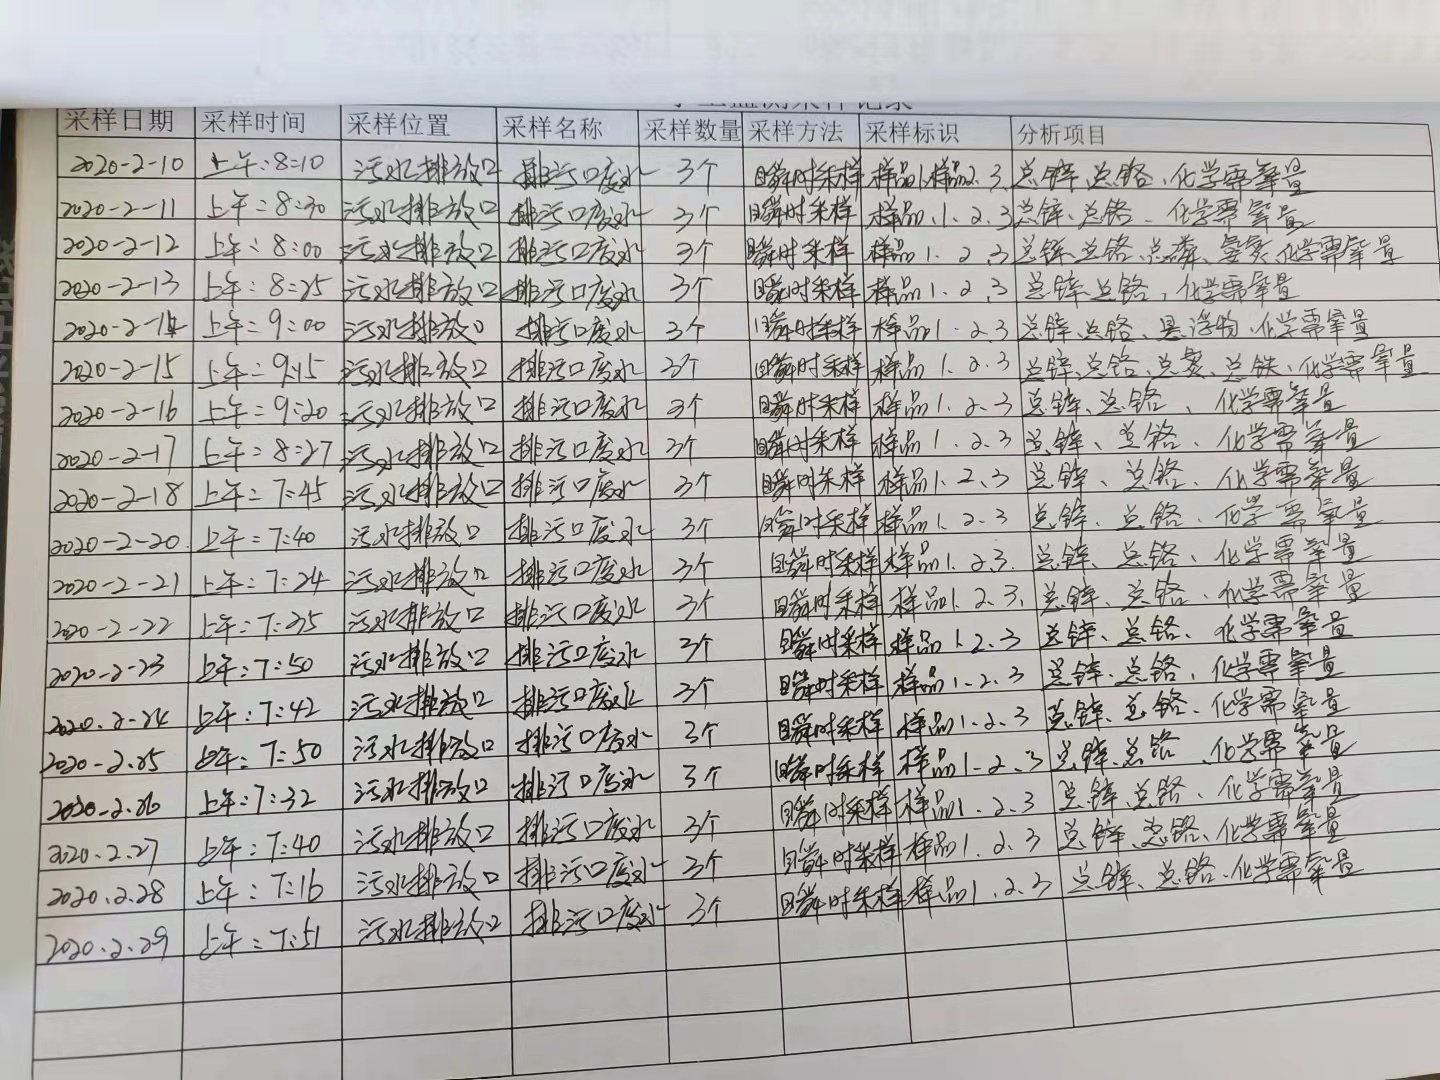 手工监测采样记录
采样日期 采样时间 采样位置 采样名称 采样数量 采样方法 采样标识 分析项目
2020-2-10 上午:8:10 污水排放口 排污口废水 3个 瞬时采样 样品1.样品2.3. 总锌、总铬、化学需氧量
2020-2-11 上午:8:30 污水排放口 排污口废水 3个 瞬时采样 样品.1.2.3 总锌、总铬、化学需氧量
2020-2-12 上午:8:00 污水排放口 排污口废水 3个 瞬时采样 样品1.2.3 总锌、总铬、总磷、氨氮、化学需氧量
2020-2-13 上午:8:25 污水排放口 排污口废水 3个 瞬时采样 样品1.2.3 总锌、总铬、化学需氧量
2020-2-14 上午:9:00 污水排放口 排污口废水 3个 瞬时采样 样品1.2.3 总锌、总铬、悬浮物、化学需氧量
2020-2-15 上午:9:15 污水排放口 排污口废水 3个 瞬时采样 样品1.2.3 总锌、总铬、总氮、总铁、化学需氧量
2020-2-16 上午:9:20 污水排放口 排污口废水 3个 瞬时采样 样品1.2.3 总锌、总铬、化学需氧量
2020-2-17 上午:8:27 污水排放口 排污口废水 3个 瞬时采样 样品1.2.3 总锌、总铬、化学需氧量
2020-2-18 上午:7:45 污水排放口 排污口废水 3个 瞬时采样 样品1.2.3 总锌、总铬、化学需氧量
2020-2-20. 上午:7:40 污水排放口 排污口废水 3个 瞬时采样 样品1.2.3 总锌、总铬、化学需氧量
2020-2-21 上午:7:24 污水排放口 排污口废水 3个 瞬时采样 样品1.2.3. 总锌、总铬、化学需氧量
2020-2-22 上午:7:35 污水排放口 排污口废水 3个 瞬时采样 样品1.2.3. 总锌、总铬、化学需氧量
2020-2-23 上午:7:50 污水排放口 排污口废水 3个 瞬时采样 样品1.2.3 总锌、总铬、化学需氧量
2020.2-24 上午:7:42 污水排放口 排污口废水 3个 瞬时采样 样品1.2.3 总锌、总铬、化学需氧量
2020-2.25 上午:7:50 污水排放口 排污口废水 3个 瞬时采样 样品1.2.3 总锌、总铬、化学需氧量
2020-2.26 上午:7:32 污水排放口 排污口废水 3个 瞬时采样 样品1.2.3 总锌、总铬、化学需氧量
2020.2.27 上午:7:40 污水排放口 排污口废水 3个 瞬时采样 样品1.2.3 总锌、总铬、化学需氧量
2020.2.28 上午:7:16 污水排放口 排污口废水 3个 瞬时采样 样品1.2.3 总锌、总铬、化学需氧量
2020.2.29 上午:7:51 污水排放口 排污口废水 3个 瞬时采样 样品1.2.3 总锌、总铬、化学需氧量